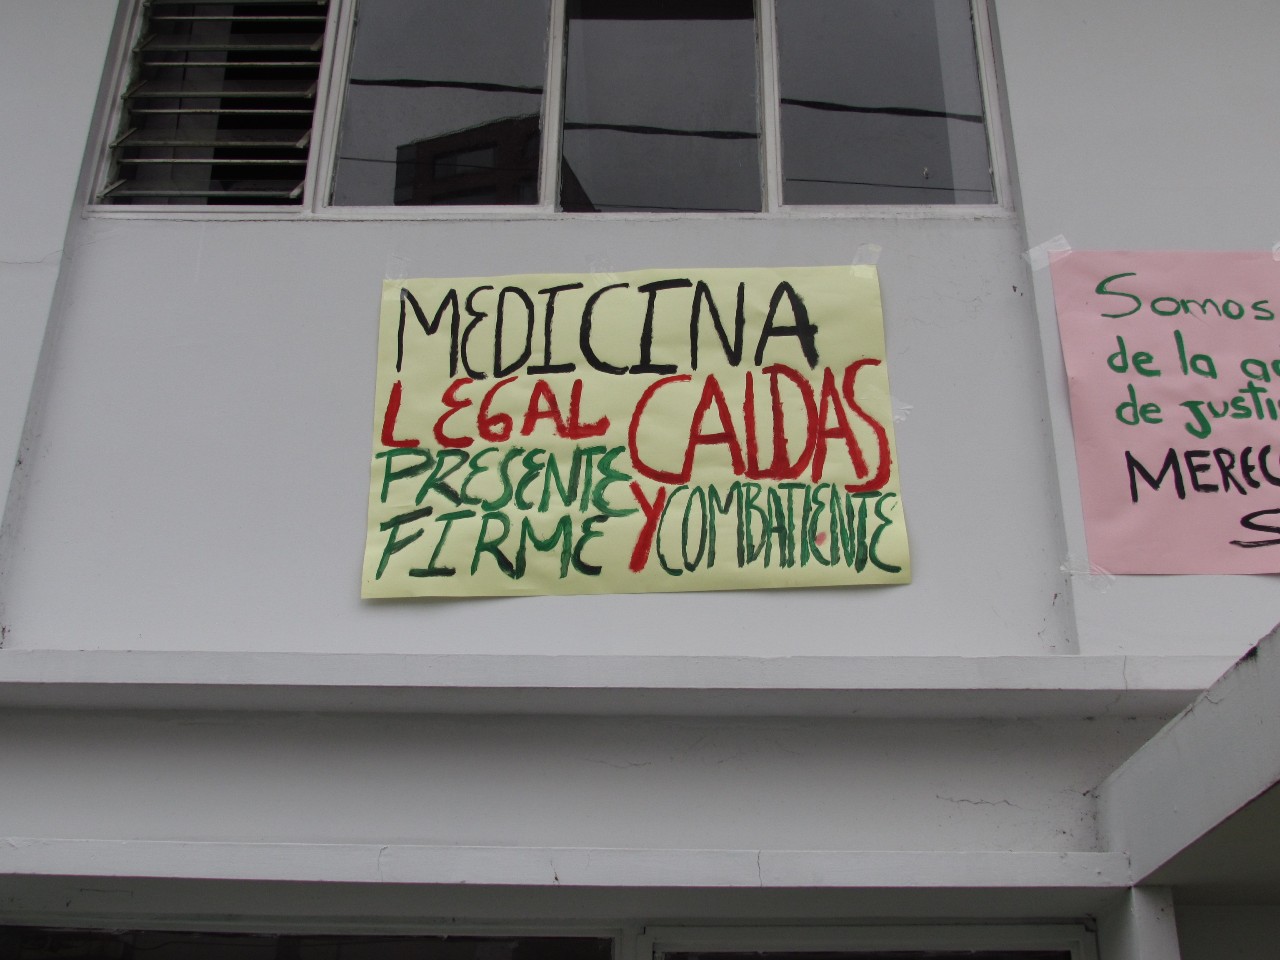 MEDICINA
LEGAL CALDAS
PRESENTE
FIRME Y COMBATIENTE
Somos
de la
de
MERE